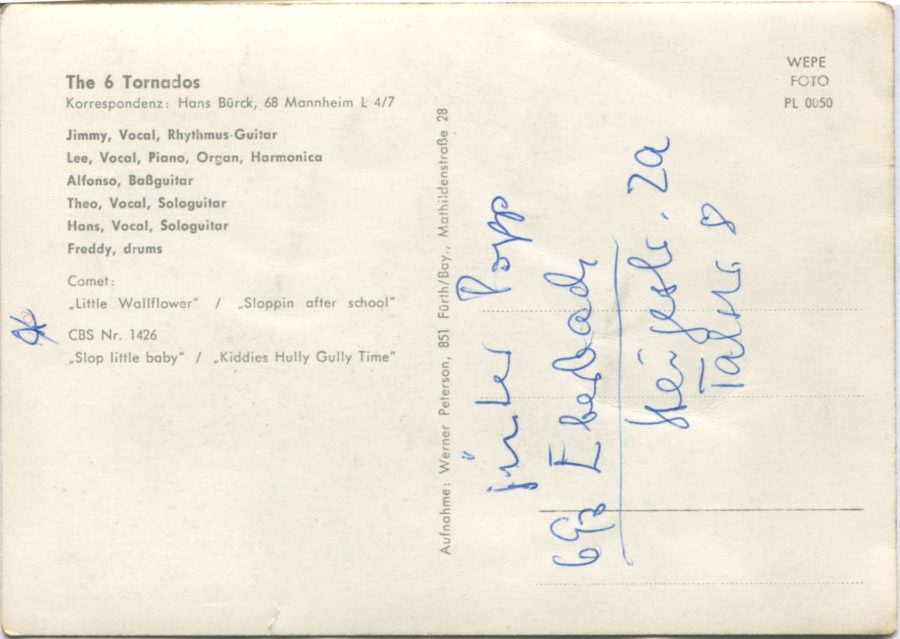 The 6 Tornados
Korrespondenz: Hans Bürck, 68 Mannheim L 4/7
Jimmy, Vocal, Rhythmus-Guitar
Lee, Vocal, Piano, Organ, Harmonica
Alfonso, Baßguitar
Theo, Vocal, Sologuitar
Hans, Vocal, Sologuitar
Freddy, drums
Comet:
„Little Wallflower" / „Sloppin after school"
CBS Nr. 1426
„Slop little baby" / „Kiddies Hully Gully Time"
Aufnahme: Werner Peterson, 851 Fürth/Bay., Mathildenstraße 28
WEPE
FOTO
PL 0050
Popp
693 Eberbach
2a
8